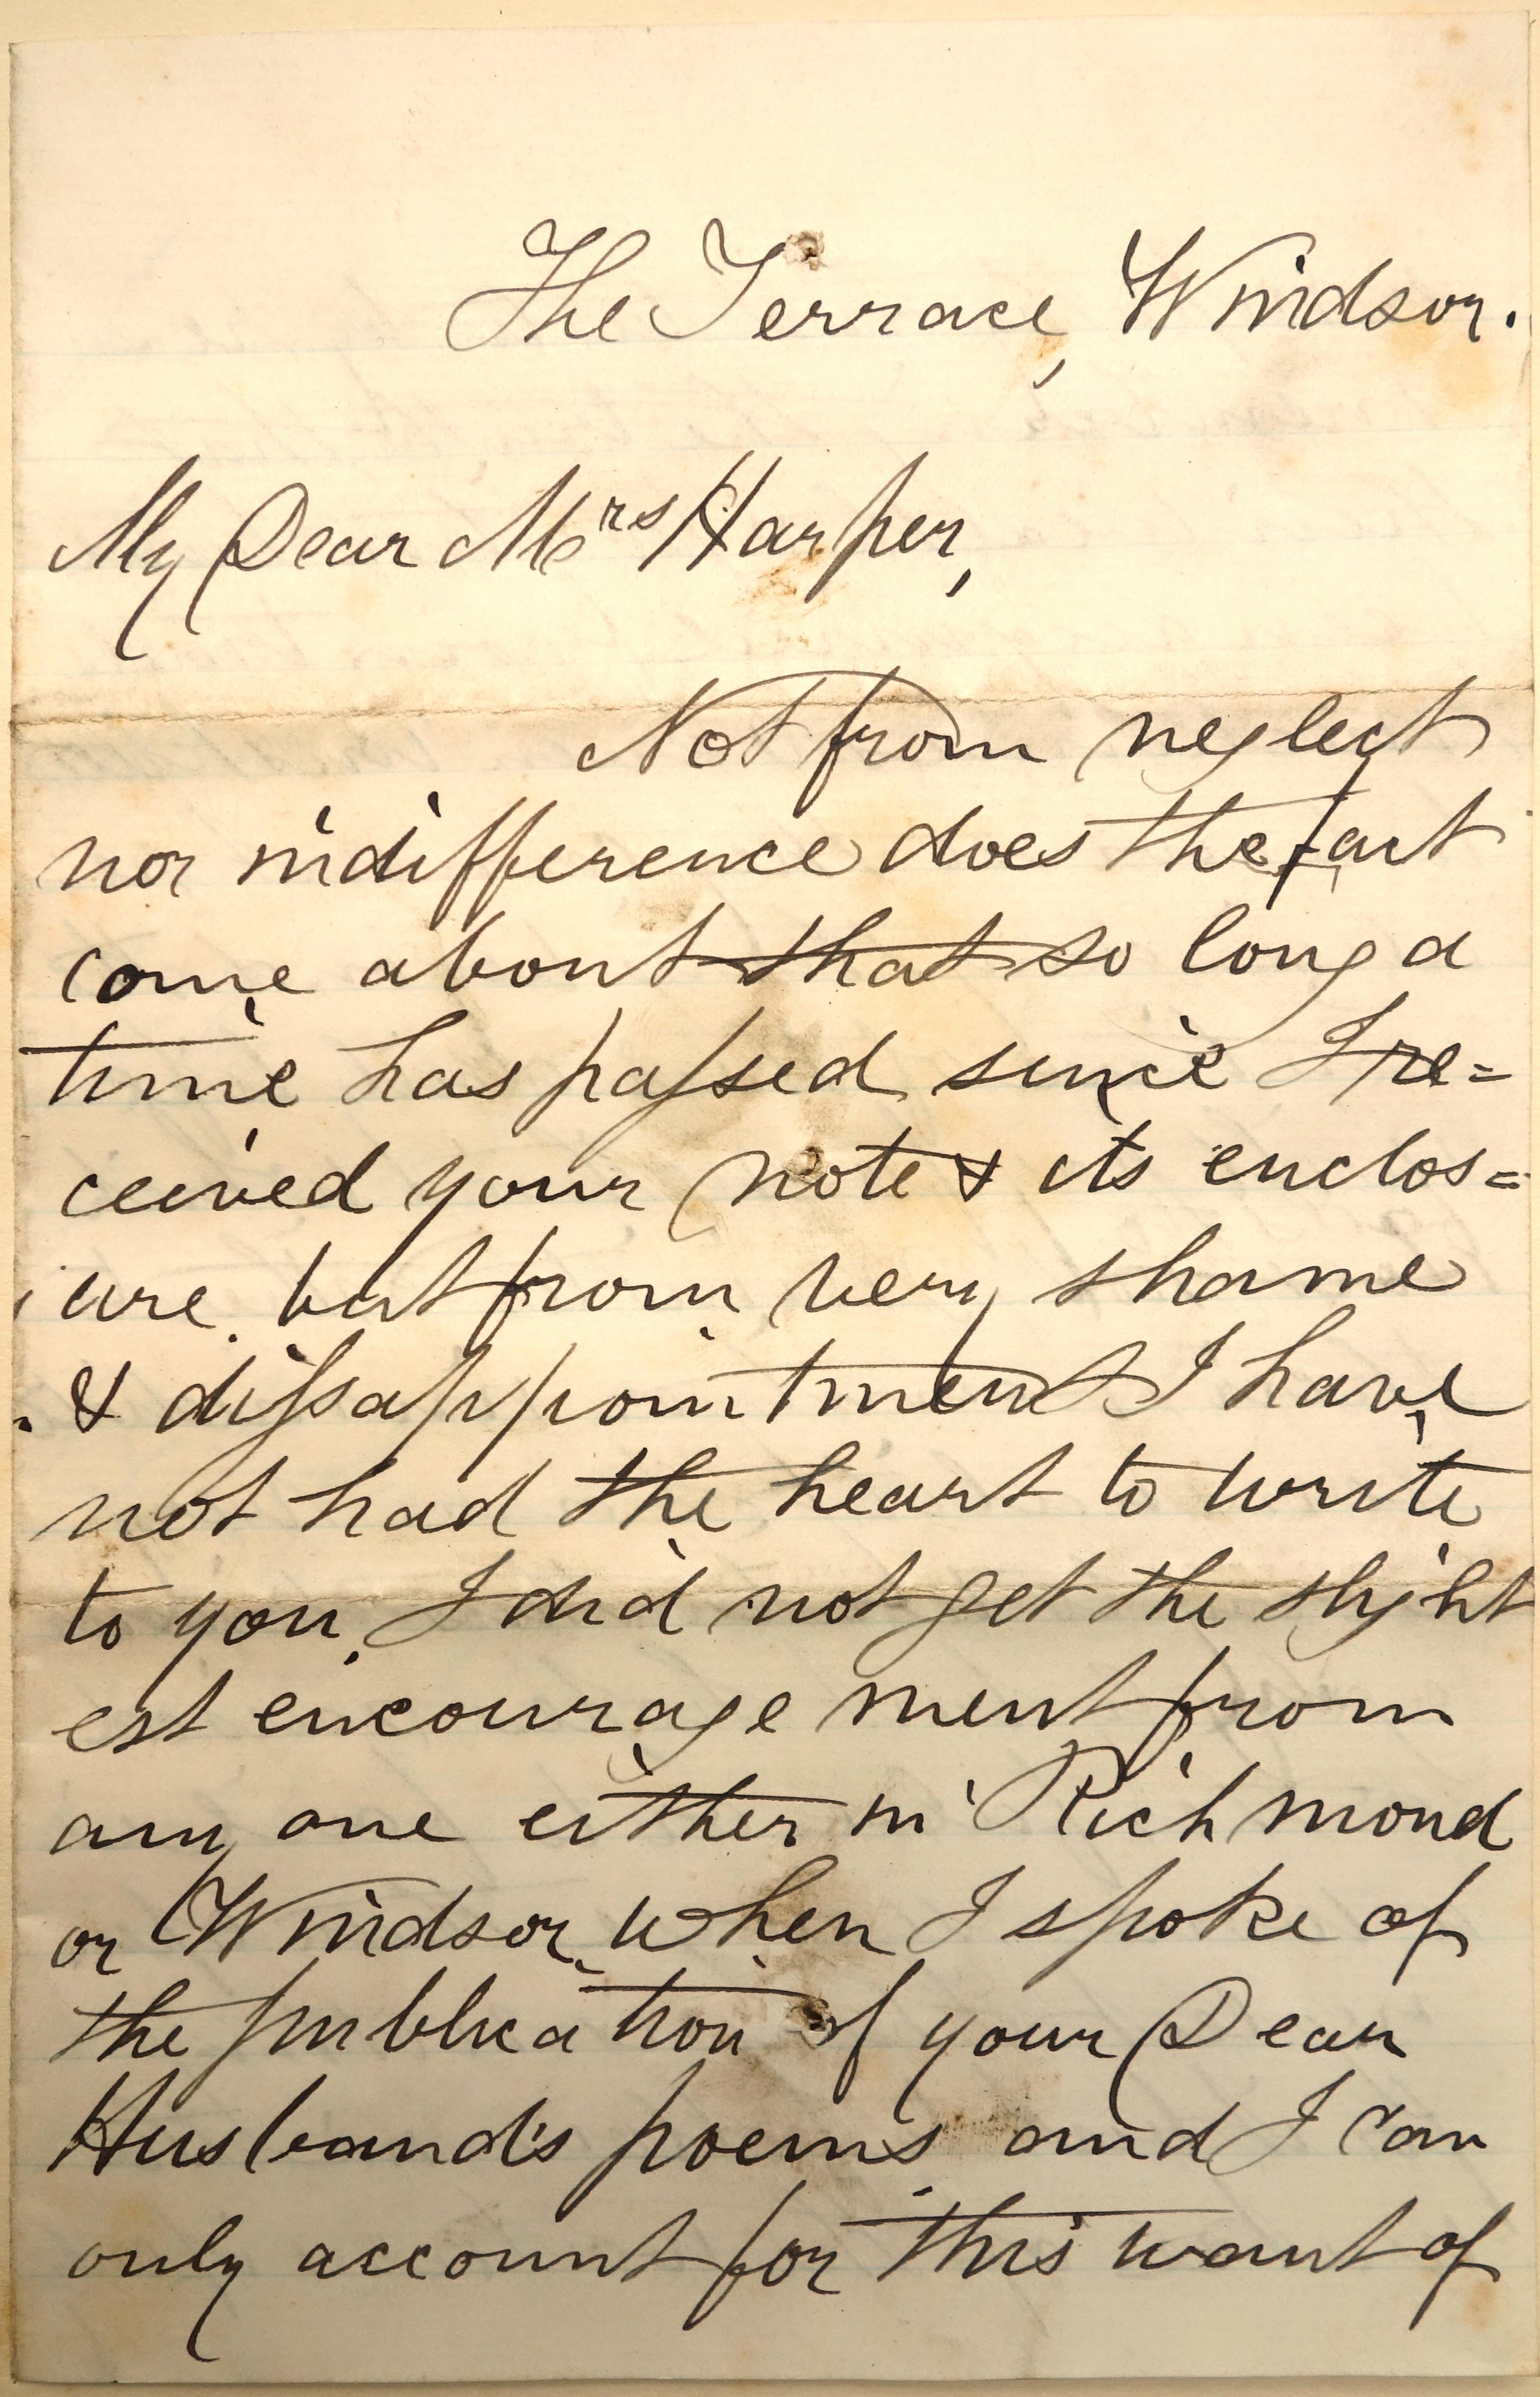 The Terrace, Windsor.
My Dear Mrs Harper,
Not from neglect
nor indifference does the fact
come about that so long a
time has passed since I re=
ceived your note & its enclos=
ure, but from very shame
& dissappointment I have
not had the heart to write
to you, I did not get the slight
est encouragement from
any one either in Richmond
or Windsor, when I spoke of
the publication of your Dear
Husband's poems and I can
only account for this want of